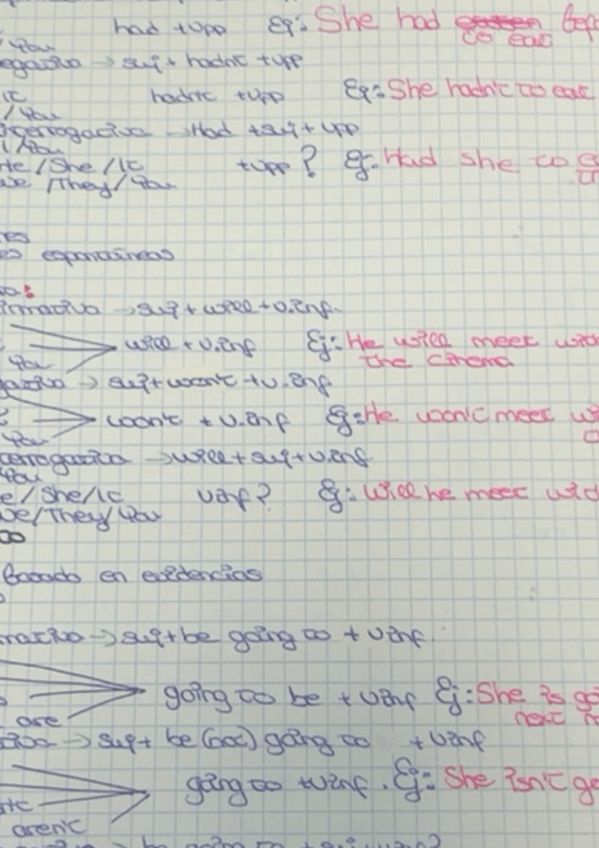 had + Vpp Ej: She had to eat
You
egativo → suj + hadn't + Vpp
It hadn't + Vpp Ej: She hadn't to eat
/You
nterrogativa → Had + suj + Vpp
I/You
He/She/It + Vpp? Ej: Had she to
We/They/You
es espontáneas
irmativo → suj + will + v.inf
will + v.inf Ej: He will meet with
You the cinema
gativo → suj + won't + v.inf
won't + v.inf Ej: He won't meet
You
terrogativa → will + suj + v.inf
You
e/She/It v.inf? Ej: Will he meet with
We/They/You
Basado en evidencias
mativo → suj + be going to + v.inf
going to be + v.inf Ej: She is go
are next
tivo → suj + be (not) going to + v.inf
going to + v.inf. Ej: She isn't go
aren't
be going to + suj